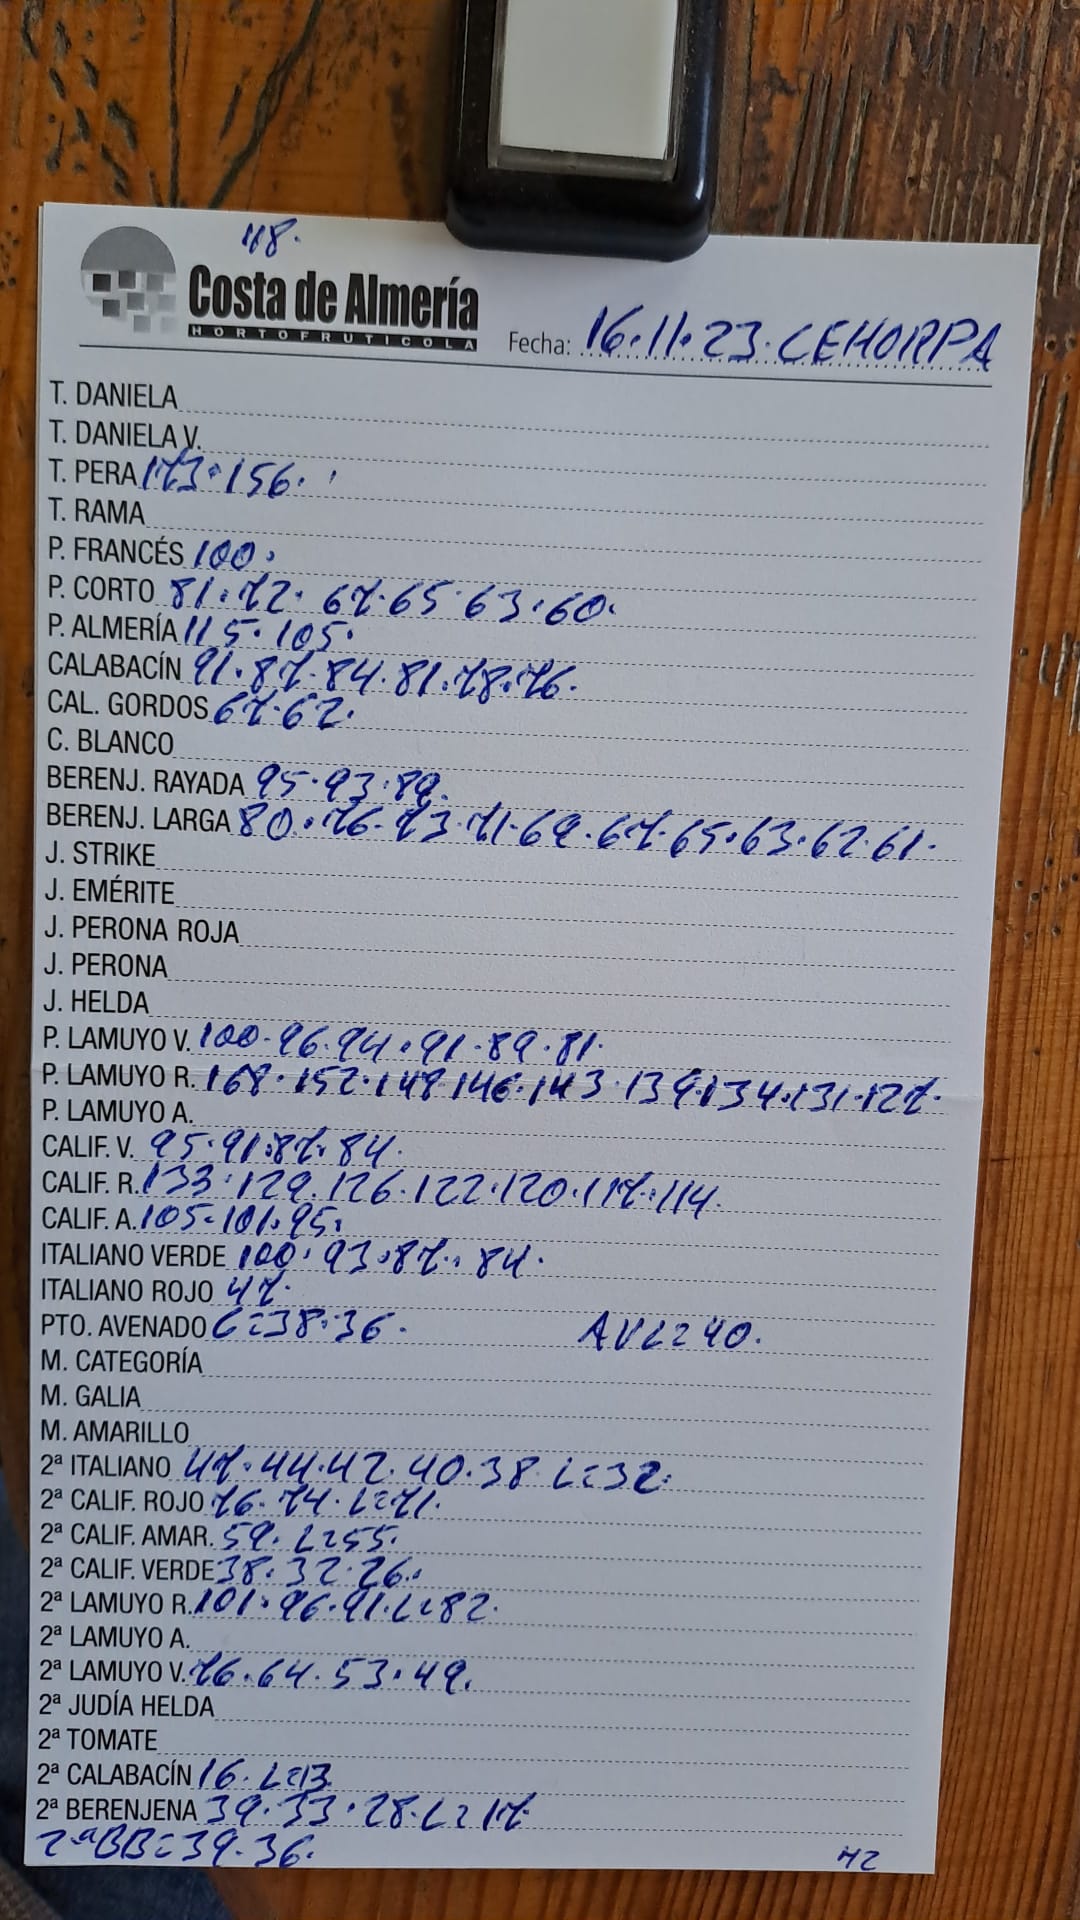 118.
Costa de Almería
HORTOFRUTICOLA
Fecha: 16.11.23. CEHORPA
T. DANIELA
T. DANIELA V.
T. PERA 173.156.
T. RAMA
P. FRANCÉS 100.
P. CORTO 81.72. 67.65.63.60.
P. ALMERÍA 115.105.
CALABACÍN 91.87.84.81.78.76.
CAL. GORDOS 67.62.
C. BLANCO
BERENJ. RAYADA 95.93.89.
BERENJ. LARGA 80.76.73.71.69.67.65.63.62.61.
J. STRIKE
J. EMÉRITE
J. PERONA ROJA
J. PERONA
J. HELDA
P. LAMUYO V. 100.96.94.91.89.81.
P. LAMUYO R. 168.152.149.146.143.139.134.131.127.
P. LAMUYO A.
CALIF. V. 95.91.87.84.
CALIF. R. 133.129.126.122.120.117.114.
CALIF. A. 105.101.95.
ITALIANO VERDE 100.93.87.84.
ITALIANO ROJO 47.
PTO. AVENADO C=38.36. AVL=40.
M. CATEGORÍA
M. GALIA
M. AMARILLO
2ª ITALIANO 47.44.42.40.38. L=32.
2ª CALIF. ROJO 76.74. L=71.
2ª CALIF. AMAR. 59. L=55.
2ª CALIF. VERDE 38.32.26.
2ª LAMUYO R. 101.96.91. L=82.
2ª LAMUYO A.
2ª LAMUYO V. 76.64.53.49.
2ª JUDÍA HELDA
2ª TOMATE
2ª CALABACÍN 16. L=13
2ª BERENJENA 39.33.28. L=17
2ªBB=39.36.